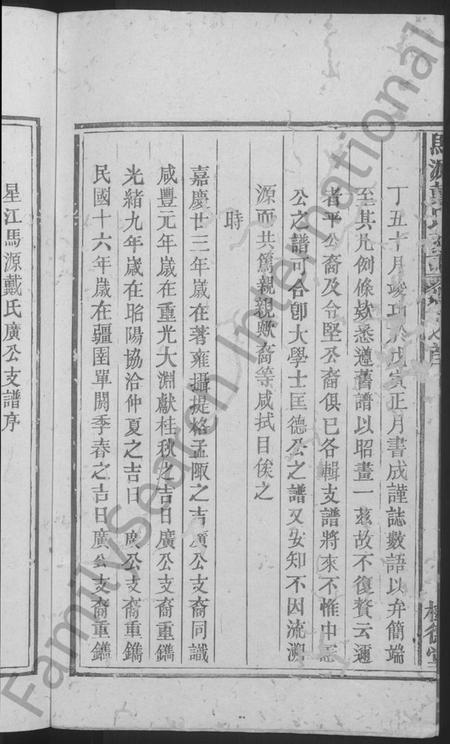 丁丑十月竣功於戊寅正月書成謹誌數語以弁簡端
至其凡例條欵悉遵舊譜以昭畫一兹故不復贅云邇
者平公裔及令堅公裔俱已各輯支譜將來不惟中
公之譜可合卽大學士匡德公之譜又安知不因流溯
源而共篤親親歟裔等咸拭目俟之
時
嘉慶廿三年歲在著雍攝提格孟陬之吉廣公支裔同識
咸豐元年歲在重光大淵獻桂秋之吉日廣公支裔重鐫
光緖九年歲在昭陽協洽仲夏之吉日廣公支裔重鐫
民國十六年歲在疆圉單閼季春之吉日廣公支裔重鐫
星江馬源戴氏廣公支譜序
FamilySearch International